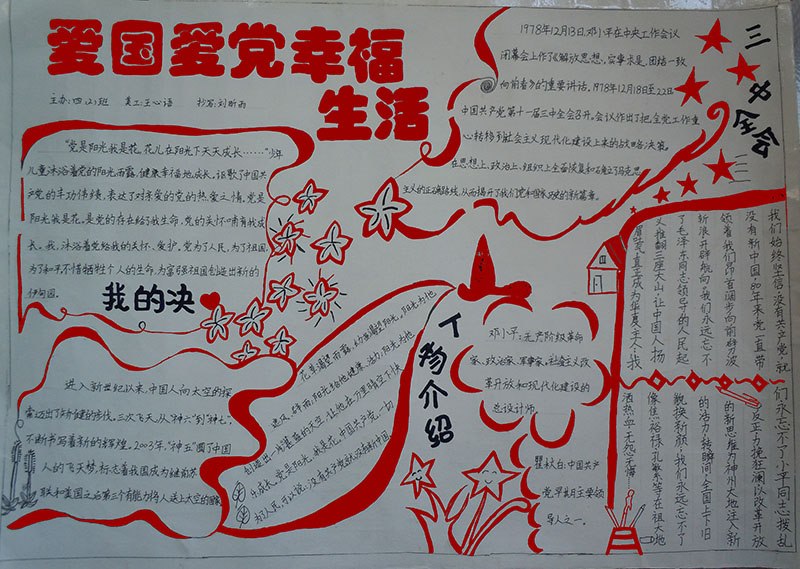 爱国爱党幸福
生活
主办:四(2)班 美工:王心语 抄写:刘昕雨
"党是阳光我是花,花儿在阳光下天天成长……"少年
儿童沐浴着党的阳光雨露,健康幸福地成长,讴歌了中国共
产党的丰功伟绩,表达了对亲爱的党的热爱之情。党是
阳光我是花,是党的存在给了我生命,党的关怀哺育我成
长。我,沐浴着党给我的关怀、爱护。党为了人民,为了祖国
为了和平不惜牺牲个人的生命,为富强祖国创造出新的
伊甸园。
我的决
1978年12月13日,邓小平在中央工作会议
闭幕会上作了《解放思想,实事求是,团结一致
向前看》的重要讲话。1978年12月18日至22日
中国共产党第十一届三中全会召开。会议作出了把全党工作重
心转移到社会主义现代化建设上来的战略决策。
在思想上、政治上、组织上全面恢复和确立了马克思
主义的正确路线,从而揭开了我们党和国家历史的新篇章。
三中全会
我们始终坚信:没有共产党,就
没有新中国!80年来党一直带
领着我们昂首阔步向前,劈波
斩浪,开辟航向。我们永远忘不
了毛泽东同志领导的人民起
义,推翻三座大山,让中国人扬
眉吐气,真正成为华夏主人;我
们永忘不了小平同志拨乱
反正,力挽狂澜,以改革开放
的新思维为神州大地注入新
的活力,转瞬间,全国上下旧
貌换新颜;我们永远忘不了
像焦裕禄、孔繁森等在祖大地
洒热血,无怨无悔……
进入新世纪以来,中国人向太空的探
索迈出了矫健的步伐。三次飞天,从"神六"到"神七",
不断书写着新的辉煌。2003年,"神五"圆了中国
人的飞天梦,标志着我国成为继俄苏
联和美国之后第三个有能力将人送上太空的国家
花草渴望雨露,幼苗渴望阳光。阳光为他
遮风、辟雨;阳光给他健康、活力;阳光为他
创造出一片蔚蓝的天空,让他在万里晴空下快
乐成长。党是阳光,我是花。中国共产党,一切
为了人民,可以说:没有共产党就没有新中国
人物介绍
邓小平:无产阶级革命
家、政治家、军事家,社会主义改
革开放和现代化建设的
总设计师。
瞿秋白:中国共产
党早期主要领
导人之一。